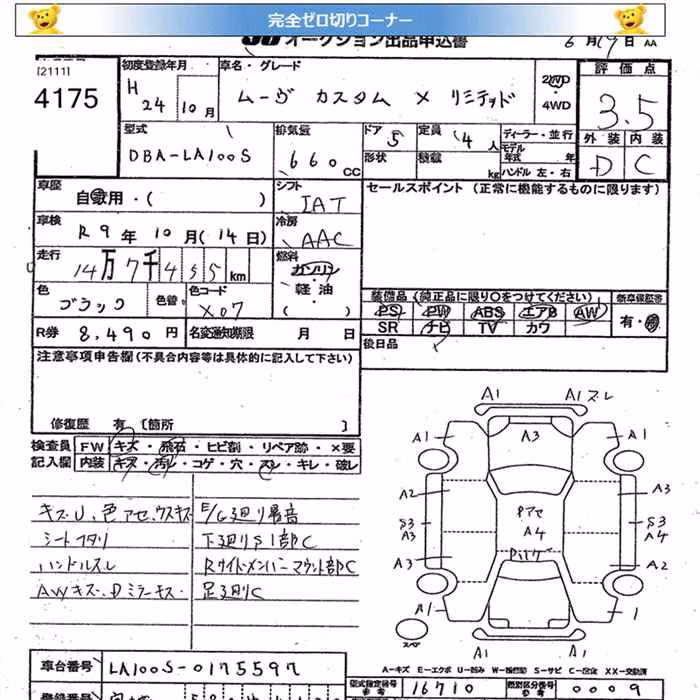 完全ゼロ切りコーナー
オークション出品申込書 6月19日 AA
[2111]
4175
初度登録年月 H 24年 10月
車名・グレード ムーヴ カスタム X リミテッド
2WD ・ 4WD
評価点 3.5
外装 内装
D C
型式 DBA-LA100S
排気量 660 CC
ドア 5 形状
定員 4人 積載 kg
ディーラー・並行
モデル年式 年
ハンドル 左・右
車歴 自家用・( )
シフト IAT
セールスポイント (正常に機能するものに限ります)
車検 R9年10月(14日)
冷房 AAC
走行 14万7千455km
燃料 ガソリン・軽油 ( )
色 ブラック 色替 色コード X07
装備品 (純正品に限り○をつけてください) 新車保証書
PS PW ABS エアB AW 有・無
SR ナビ TV カワ
R券 8,490円 名変通知期限 月 日
後日品
注意事項申告欄 (不具合内容等は具体的に記入して下さい)
修復歴 有 [箇所 ]
検査員記入欄 FW キズ・飛石・ヒビ割・リペア跡・×要
内装 キズ・汚レ・コゲ・穴・スレ・キレ・破レ
キズU、色アセ、ウスキズ E/G廻り異音
シートコタリ 下廻りS1部C
ハンドルスレ Rサイドメンバーマウント部C
AWキズ、Dミラーキズ 足廻りC
A1 A1ズレ
A1 A3 A1
A2 A3
S3 Pアセ S3
A3 A4 A4
A3 A2
A1 1
スペア
A-キズ E-エクボ U-凹み W-補修跡 S-サビ C-腐食 XX-交換済
車台番号 LA100S-0175597
型式指定番号 参考 16710 類別区分番号 参考 0009
登録番号